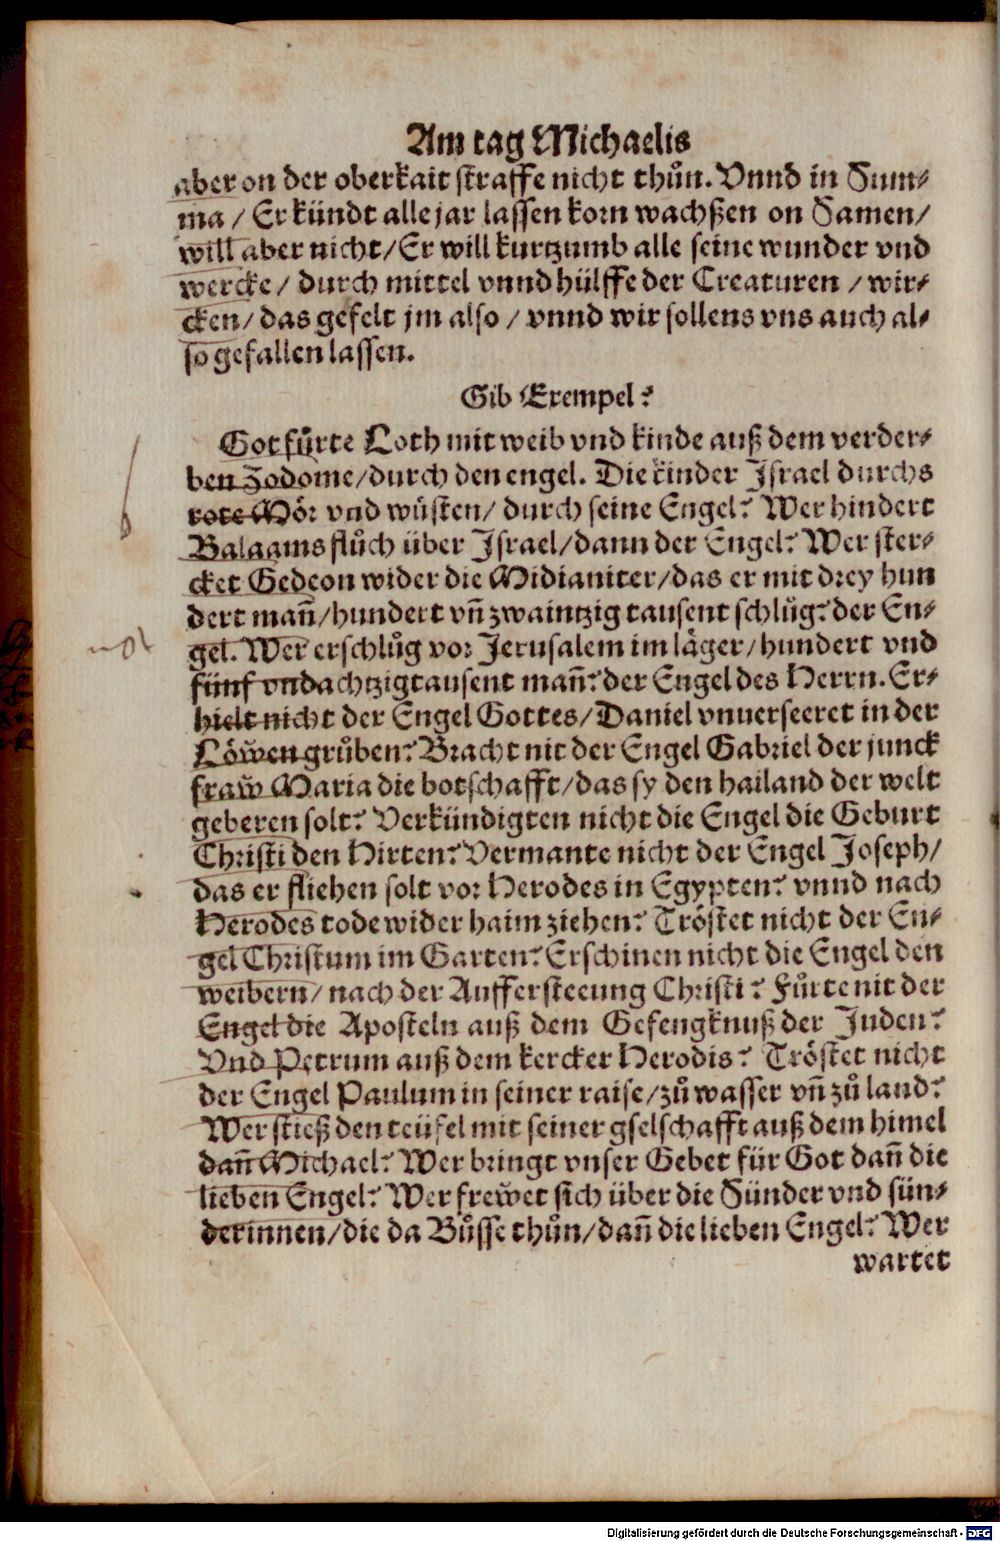 Am tag Michaelis
aber on der oberkait straffe nicht thůn. Vnnd in Sum-
ma / Er kündt alle jar lassen korn wachßen on Samen /
will aber nicht / Er will kurtzumb alle seine wunder vnd
wercke / durch mittel vnnd hülffe der Creaturen / wir-
cken / das gefelt jm also / vnnd wir sollens vns auch al-
so gefallen lassen.
Gib Exempel?
Got fůrte Loth mit weib vnd kinde auß dem verder-
ben Zodome / durch den engel. Die kinder Israel durchs
rote Mör vnd wüsten / durch seine Engel? Wer hindert
Balaams flůch über Israel / dann der Engel? Wer ster-
cket Gedeon wider die Midianiter / das er mit drey hun
dert mañ / hundert vñ zwaintzig tausent schlůg? der En-
gel. Wer erschlůg vor Jerusalem im läger / hundert vnd
fünf vndachtzigtausent mañ? der Engel des Herrn. Er-
hielt nicht der Engel Gottes / Daniel vnuerseeret in der
Löwen grůben? Bracht nit der Engel Gabriel der junck
fraw Maria die botschafft / das sy den hailand der welt
geberen solt? Verkündigten nicht die Engel die Geburt
Christi den Hirten? Vermante nicht der Engel Joseph /
das er fliehen solt vor Herodes in Egypten? vnnd nach
Herodes tode wider haim ziehen? Tröstet nicht der En-
gel Christum im Garten? Erschinen nicht die Engel den
weibern / nach der Auffersteeung Christi? Fůrte nit der
Engel die Aposteln auß dem Gefengknuß der Juden?
Vnd Petrum auß dem kercker Herodis? Tröstet nicht
der Engel Paulum in seiner raise / zů wasser vñ zů land?
Wer stieß den teüfel mit seiner gselschafft auß dem himel
dañ Michael? Wer bringt vnser Gebet für Got dañ die
lieben Engel? Wer frewet sich über die Sünder vnd sün-
derinnen / die da Bůsse thůn / dañ die lieben Engel? Wer
wartet
Digitalisierung gefördert durch die Deutsche Forschungsgemeinschaft - DFG